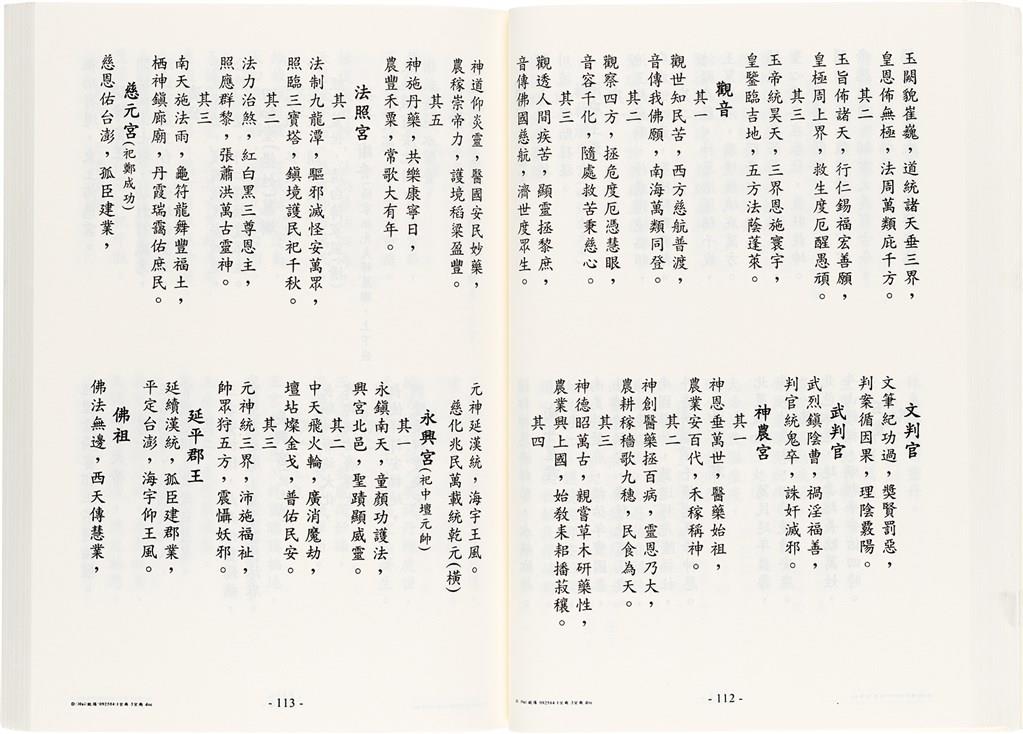 玉闕貌崔巍，道統諸天垂三界，
皇恩佈無極，法周萬類庇千方。
其二
玉旨佈諸天，行仁錫福宏善願，
皇極周上界，救生度厄醒愚頑。
其三
玉帝統昊天，三界恩施寰宇，
皇鑒臨吉地，五方法蔭蓬萊。
觀音
其一
觀世知民苦，西方慈航普渡，
音傳我佛願，南海萬類同登。
其二
觀察四方，拯危度厄憑慧眼，
音容千化，隨處救苦秉慈心。
其三
觀透人間疾苦，顯靈拯黎庶，
音傳佛國慈航，濟世度眾生。
文判官
文筆紀功過，獎賢罰惡，
判案循因果，理陰燮陽。
武判官
武烈鎮陰曹，禍淫福善，
判官統鬼卒，誅奸滅邪。
神農宮
其一
神恩垂萬世，醫藥始祖，
農業安百代，禾稼稱神。
其二
神創醫藥拯百病，靈恩乃大，
農耕稼穡歌九穗，民食為天。
其三
神德昭萬古，親嘗草木研藥性，
農業興上國，始教耒耜播菽穰。
其四
- 112 -
神道仰炎靈，醫國安民妙藥，
農稼崇帝力，護境稻粱盈豐。
其五
神施丹藥，共樂康寧日，
農豐禾粟，常歌大有年。
法照宮
其一
法制九龍潭，驅邪滅怪安萬眾，
照臨三寶塔，鎮境護民祀千秋。
其二
法力治煞，紅白黑三尊恩主，
照應群黎，張蕭洪萬古靈神。
其三
南天施法雨，龜符龍舞豐福土，
栖神鎮廊廟，丹霞瑞靄佑庶民。
慈元宮(祀鄭成功)
慈恩佑台澎，孤臣建業，
元神延漢統，海宇王風。
慈化兆民萬載統乾元(橫)
永興宮(祀中壇元帥)
其一
永鎮南天，童顏功護法，
興宮北邑，聖蹟顯威靈。
其二
中天飛火輪，廣消魔劫，
壇坫燦金戈，普佑民安。
其三
元神統三界，沛施福祉，
帥眾狩五方，震懾妖邪。
延平郡王
延續漢統，孤臣建郡業，
平定台澎，海宇仰王風。
佛祖
佛法無邊，西天傳慧業，
- 113 -